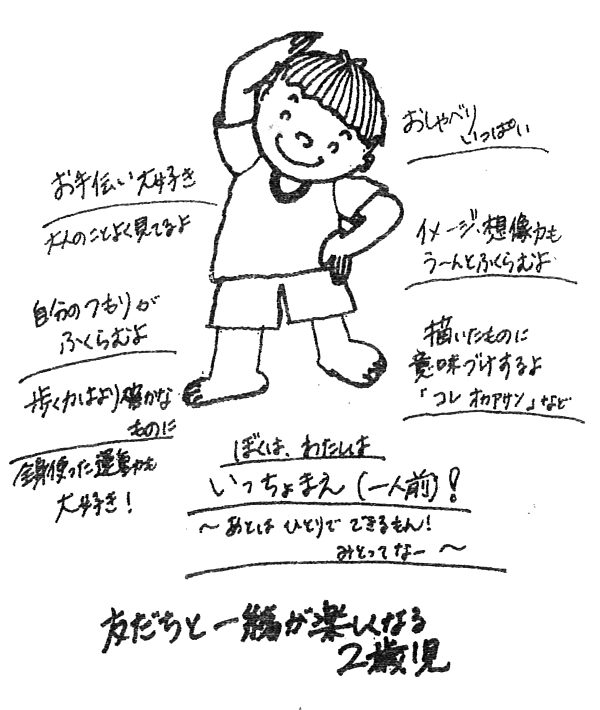 おしゃべり
いっぱい
お手伝い大好き
大人のことよく見てるよ
イメージ、想像力も
う〜んとふくらむよ
自分のつもりが
ふくらむよ
描いたものに
意味づけするよ
「コレ オカアサン」など
歩く力はより確かな
ものに
全身使った運動も
大好き！
ぼくは、わたしは
いっちょまえ(一人前)！
〜あとは ひとりで できるもん！
みとってなー〜
友だちと一緒が楽しくなる
2歳児